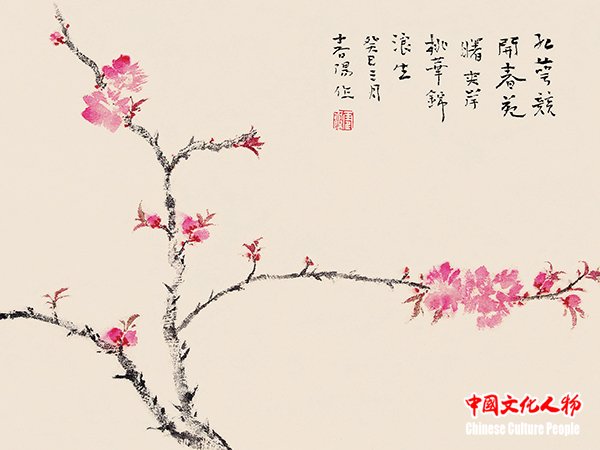 紅萼競
開春苑
曙爽岸
桃華錦
浪生
癸巳三月
中國文化人物
Chinese Culture People